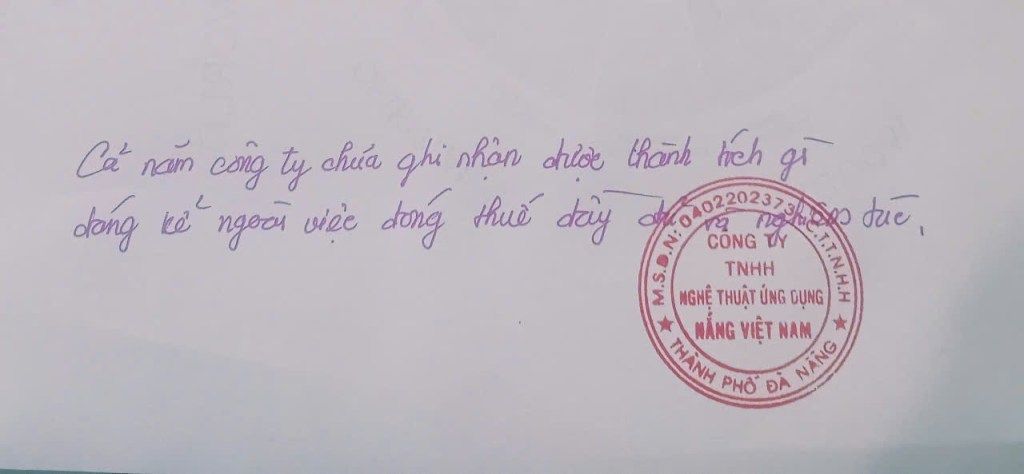 Cả năm công ty chưa ghi nhận được thành tích gì
đáng kể ngoài việc đóng thuế đầy đủ và nghiêm túc.
M.S.D.N: 0402202373 - C.T.T.N.H.H
CÔNG TY
TNHH
NGHỆ THUẬT ỨNG DỤNG
NẮNG VIỆT NAM
★ THÀNH PHỐ ĐÀ NẴNG ★